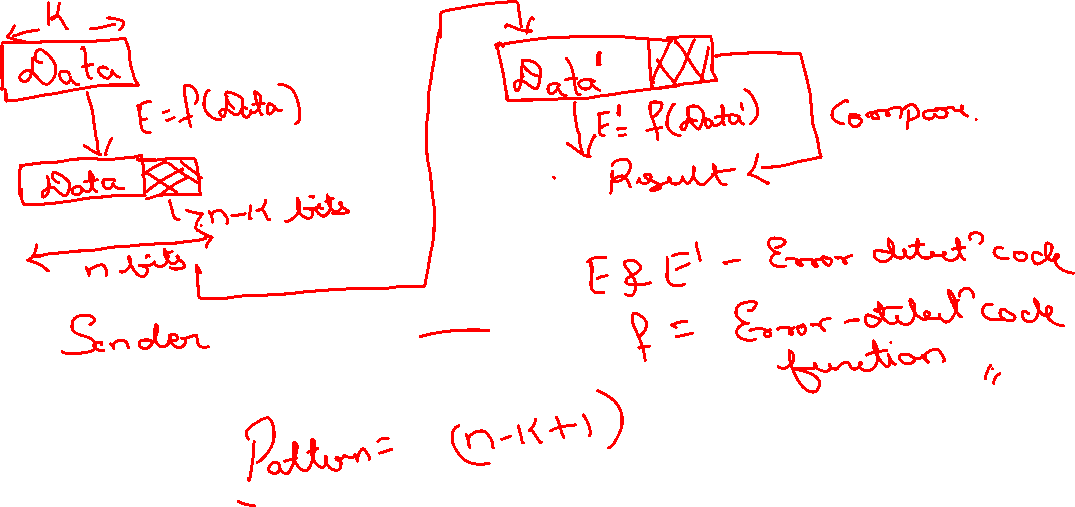 K
Data
E = f(Data)
Data
n-K bits
n bits
Sender
Data'
E' = f(Data')
Compare.
Result
E & E' - Error detectⁿ code
f = Error-detectⁿ code
function "
Pattern = (n-K+1)